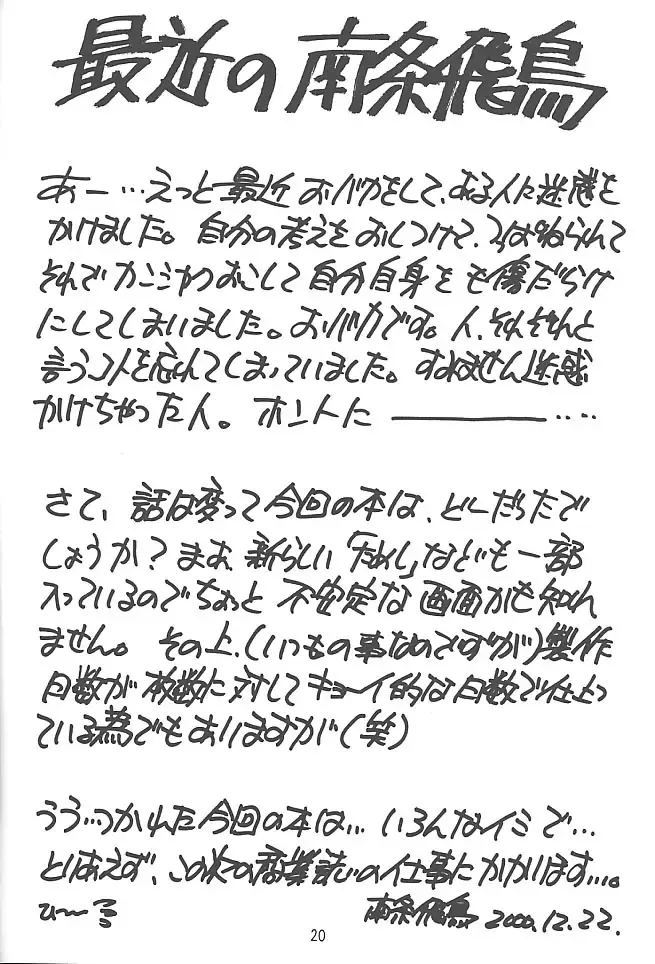 最近の南条飛鳥
あー…えっと最近おバカをして、ある人に迷惑を
かけました。自分の考えをおしつけて、つっぱねられて
それでカンシャクおこして自分自身をも傷だらけ
にしてしまいました。おバカです。人、それぞれと
言うコトを忘れてしまっていました。すいません迷惑
かけちゃった人。ホントに――――‥‥
さて、話は変って今回の本は、どーだったで
しょうか？まぁ、新らしい「ためし」なども一部
入っているのでちょっと不安定な画面かも知れ
ません。その上、(いつもの事なのですが)製作
日数が枚数に対してキョーイ的な日数で仕上っ
ている為でもありますが(笑)
うう…つかれた今回の本は…いろんなイミで…
とりあえず、この次の商業誌の仕事にかかります…。
ひ〜る
南条飛鳥 2000.12.22.
20